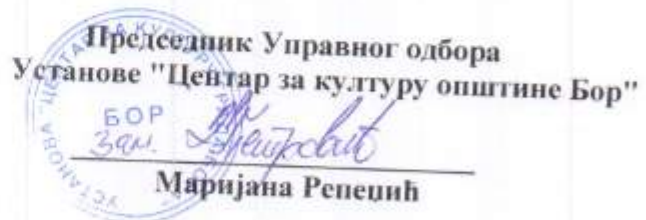 Председник Управног одбора
Установе "Центар за културу општине Бор"
БОР
Зам.
Маријана Репеџић